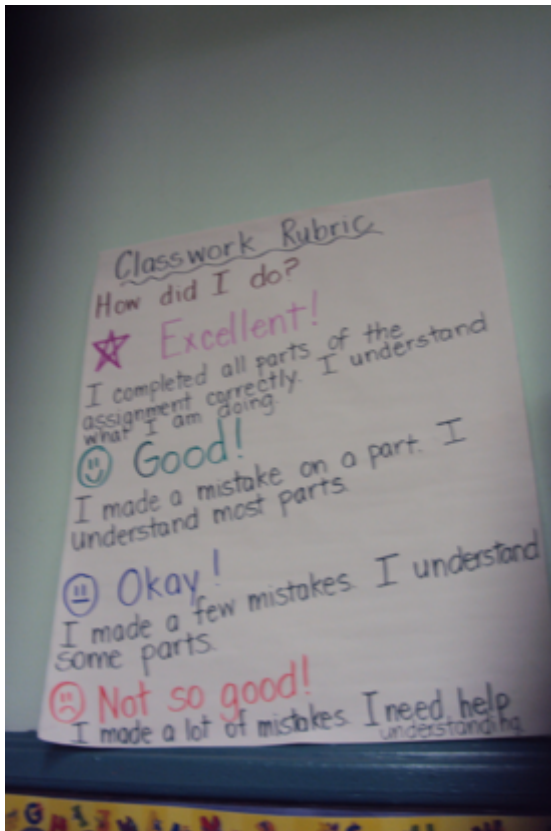 Classwork Rubric
How did I do?
Excellent!
I completed all parts of the
assignment correctly. I understand
what I am doing.
Good!
I made a mistake on a part. I
understand most parts.
Okay!
I made a few mistakes. I understand
some parts.
Not so good!
I made a lot of mistakes. I need help
understanding